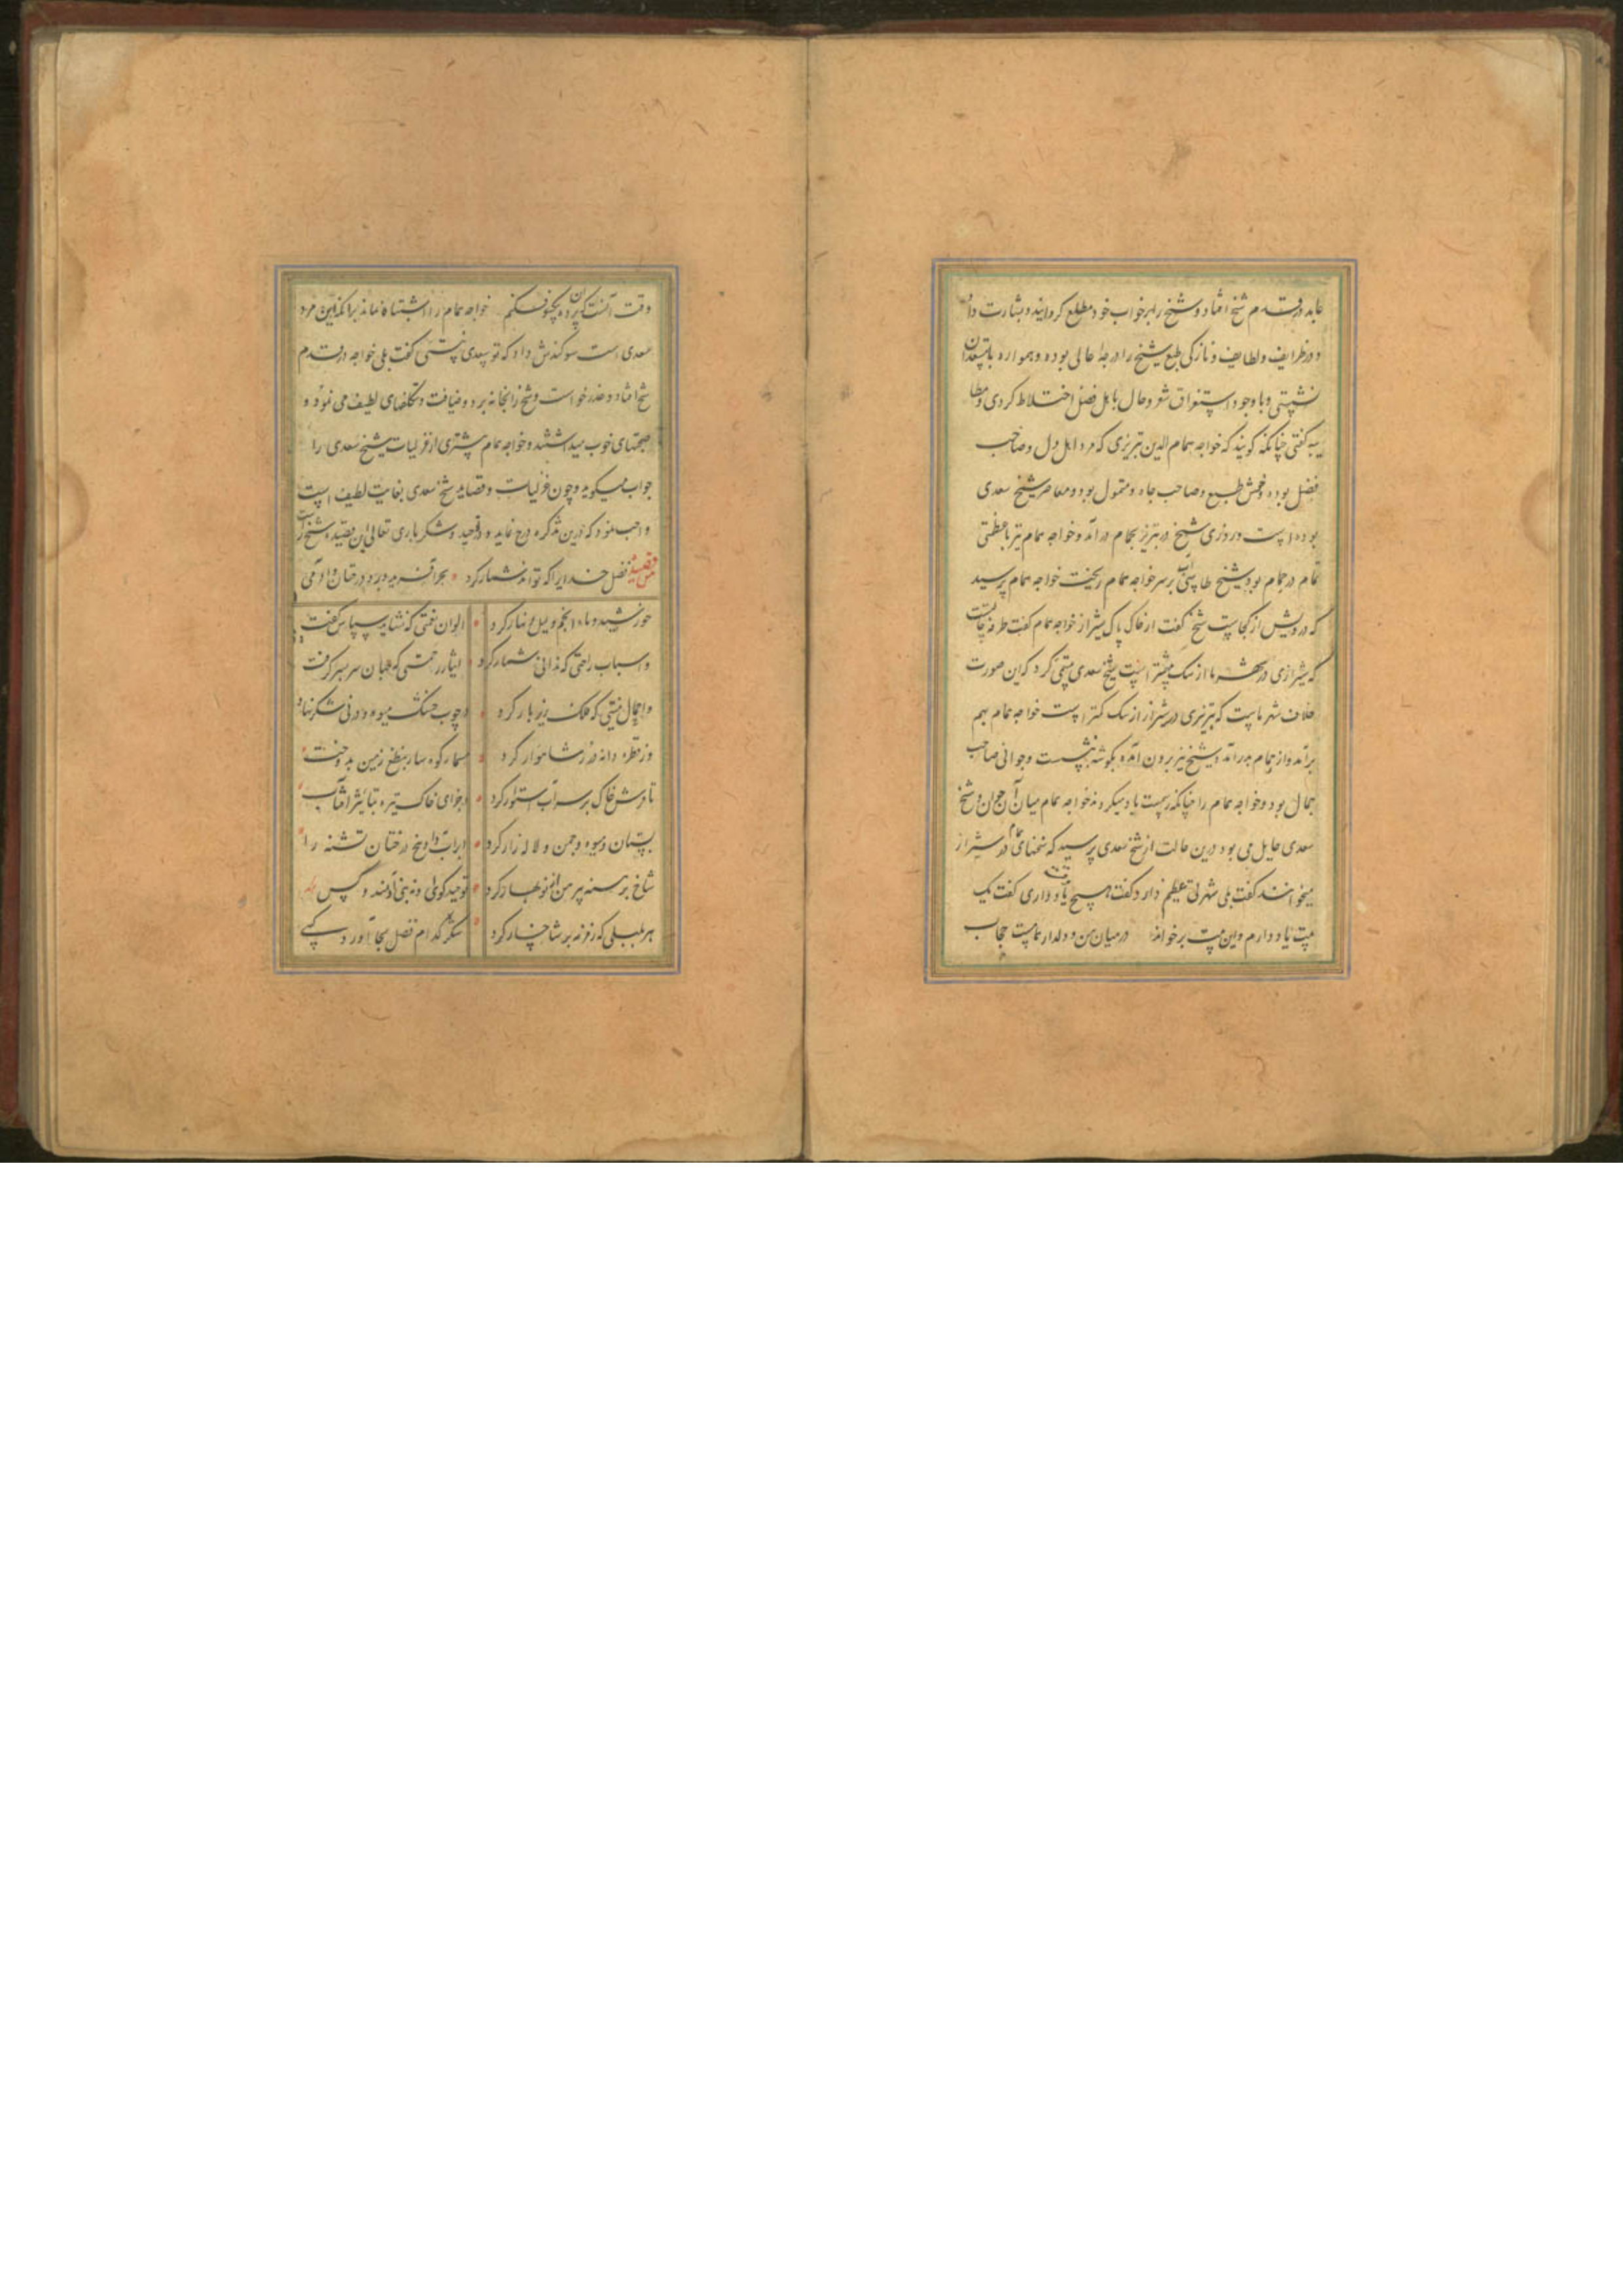 عابد در قدم شیخ افتاد و شیخ را بر خواب خود مطلع گردانید و بشارت داد
و در ظرایف و لطایف و نازکی طبع شیخ را درجه عالی بوده و همواره با مستعدان
نشستی و با وجود استغراق شعر و حال با اهل فضل اختلاط کردی و مطا
یبه گفتی چنانکه گویند که خواجه همام الدین تبریزی که مرد اهل دل و صاحب
فضل بوده و خوش طبع و صاحب جاه و متمول بود و معاصر شیخ سعدی
بوده است و روزی شیخ در تبریز بحمام درآمد و خواجه همام نیز با عظمتی
تمام در حمام بود شیخ طاسی آب بر سر خواجه همام ریخت خواجه همام پرسید
که درویش از کجاست شیخ گفت از خاک پاک شیراز خواجه همام گفت طرفه حالیست
که شیرازی در شهر ما از سک بیشتر است شیخ سعدی تبسمی کرد که این صورت
خلاف شهر ماست که تبریزی در شیراز از سک کمتر است خواجه همام بهم
برآمد و از حمام بدر آمد و شیخ نیز برون آمده بگوشه نشست و جوانی صاحب
جمال بود و خواجه همام را چنانکه رسمست باد میکرد و خواجه همام میان آن جوان و شیخ
سعدی حایل می بود درین حالت از شیخ سعدی پرسید که سخنهای همام در شیراز
میخوانند گفت بلی شهرتی عظیم دارد گفت هیچ یاد داری گفت یک
بیت یاد دارم و این بیت برخواند در میان من و دلدار همامست حجاب
وقت آنست که این پرده بیکسو فکنم خواجه همام را اشتباه نماند برانکه این مرد
سعدی است سوگندش داد که تو سعدی نیستی گفت بلی خواجه در قدم
شیخ افتاد و عذر خواست و شیخ را بخانه برد و ضیافت و تکلفهای لطیف می نمود و
صحبتهای خوب میداشتند و خواجه همام بیشتری از غزلیات شیخ سعدی را
جواب میگوید و چون غزلیات و قصاید شیخ سعدی بغایت لطیف است
واجب نمود که درین تذکره درج نماید و در توحید و شکر باری تعالی این قصیده شیخ راست
من قصیده فضل خدایرا که تواند شمار کرد بحر آفرید و بر و درختان و آدمی
خورشید و ماه و انجم و لیل و نهار کرد الوان نعمتی که نشاید سپاس گفت
و اسباب راحتی که ندانی شمار کرد آثار رحمتی که جهان سر بسر گرفت
و احمال منتی که فلک زیر بار کرد از چوب خشک میوه و در نی شکر نهاد
وز قطره دانه در شاهوار کرد مسمار کوهسار بنطع زمین بدوخت
تا فرش خاک بر سر آب استوار کرد اجزای خاک تیره بتاثیر آفتاب
بستان و میوه و چمن و لاله زار کرد ابر آب داد بیخ درختان تشنه را
شاخ برهنه پیرهن از نو بهار کرد توحید گوی او نه بنی آدمند و بس
هر بلبلی که زمزمه بر شاخسار کرد شکر کدام فضل بجا آورد کسی